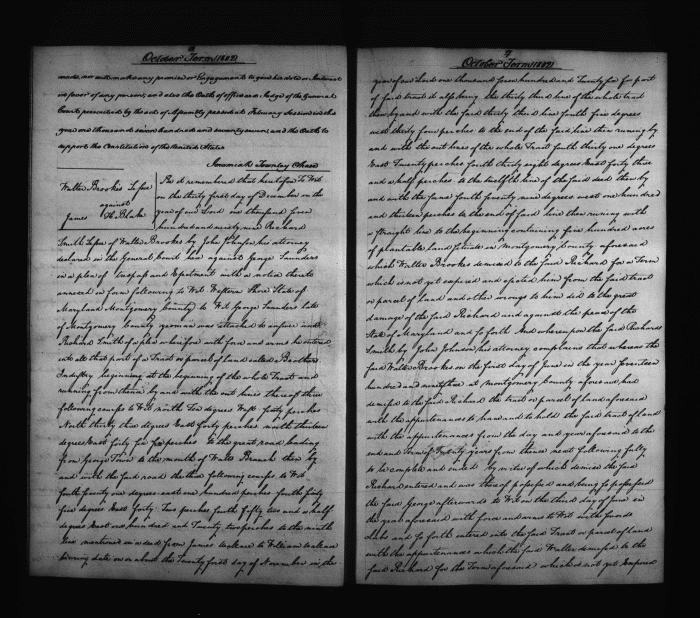 6
October Term 1802
made, nor will make any promise or Engagement to give his vote or Interest
in favor of any person; and also the Oath of office as a Judge of the General
Court prescribed by the act of Assembly passed at February Session in the
year one thousand seven hundred and seventy seven, and the Oath to
support the Constitution of the United States
Jeremiah Townley Chase
Walter Brookes Lessee
against
James H. Blake
Be it remembered that heretofore To Wit
on the thirty first day of December in the
year of our Lord one thousand seven
hundred and ninety nine Richard
Smith Lessee of Walter Brookes by John Johnson his attorney
declared in the General Court here against George Saunders
in a plea of trespass and Ejectment with a notice thereto
annexed in form following to Wit Western Shore State of
Maryland Montgomery County to Wit George Saunders late
of Montgomery County yeoman was attached to answer unto
Richard Smith of a plea wherefore with force and arms he entered
into all that part of a Tract or parcel of land called Brothers
Industry beginning at the beginning of the whole Tract and
running from thence by and with the out lines thereof three
following courses to Wit north Ten degrees West forty perches
North thirty three degrees East forty perches north thirteen
degrees East forty six perches to the great road leading
from George Town to the mouth of Watts Branch then by
and with the said road the three following courses to Wit
south seventy one degrees east one hundred perches South forty
five degrees East forty Two perches South fifty two and a half
degrees East one hundred and Twenty two perches to the ninth
line mentioned in a deed from James Wallace to William Wallace
bearing date on or about the Twenty first day of November in the
7
October Term 1802
year of our Lord one thousand seven hundred and Seventy six for part
of said tract it also being the thirty third line of the whole tract
then by and with the said thirty third line South five degrees
West thirty four perches to the end of the said line then running by
and with the out lines of the whole Tract South thirty one degrees
East Twenty perches South thirty eight degrees East forty three
and a half perches to the twelfth line of the said deed then by
and with the same South seventy nine degrees west one hundred
and thirteen perches to the end of said line then running with
a straight line to the beginning containing five hundred acres
of plantable land situate in Montgomery County aforesaid
which Walter Brookes demised to the said Richard for a Term
which is not yet expired and ejected him from the said tract
or parcel of land and other wrongs to him did to the great
damage of the said Richard and against the peace of the
State of Maryland and so forth And whereupon the said Richard
Smith by John Johnson, his attorney complains that whereas the
said Walter Brookes on the first day of June in the year Seventeen
hundred and ninety three at Montgomery County aforesaid had
demised to the said Richard the tract or parcel of land aforesaid
with the appurtenances to have and to hold the said tract of land
with the appurtenances from the day and year aforesaid to the
end and Term of Twenty years from thence next following fully
to be complete and ended by virtue of which demise the said
Richard entered and was thereof possessed and being so possessed
the said George afterwards to Wit on the third day of June in
the year aforesaid with force and arms to Wit with Swords
Clubs and so forth entered into the said Tract or parcel of land
with the appurtenances which the said Walter demised to the
said Richard for the Term aforesaid which is not yet Expired